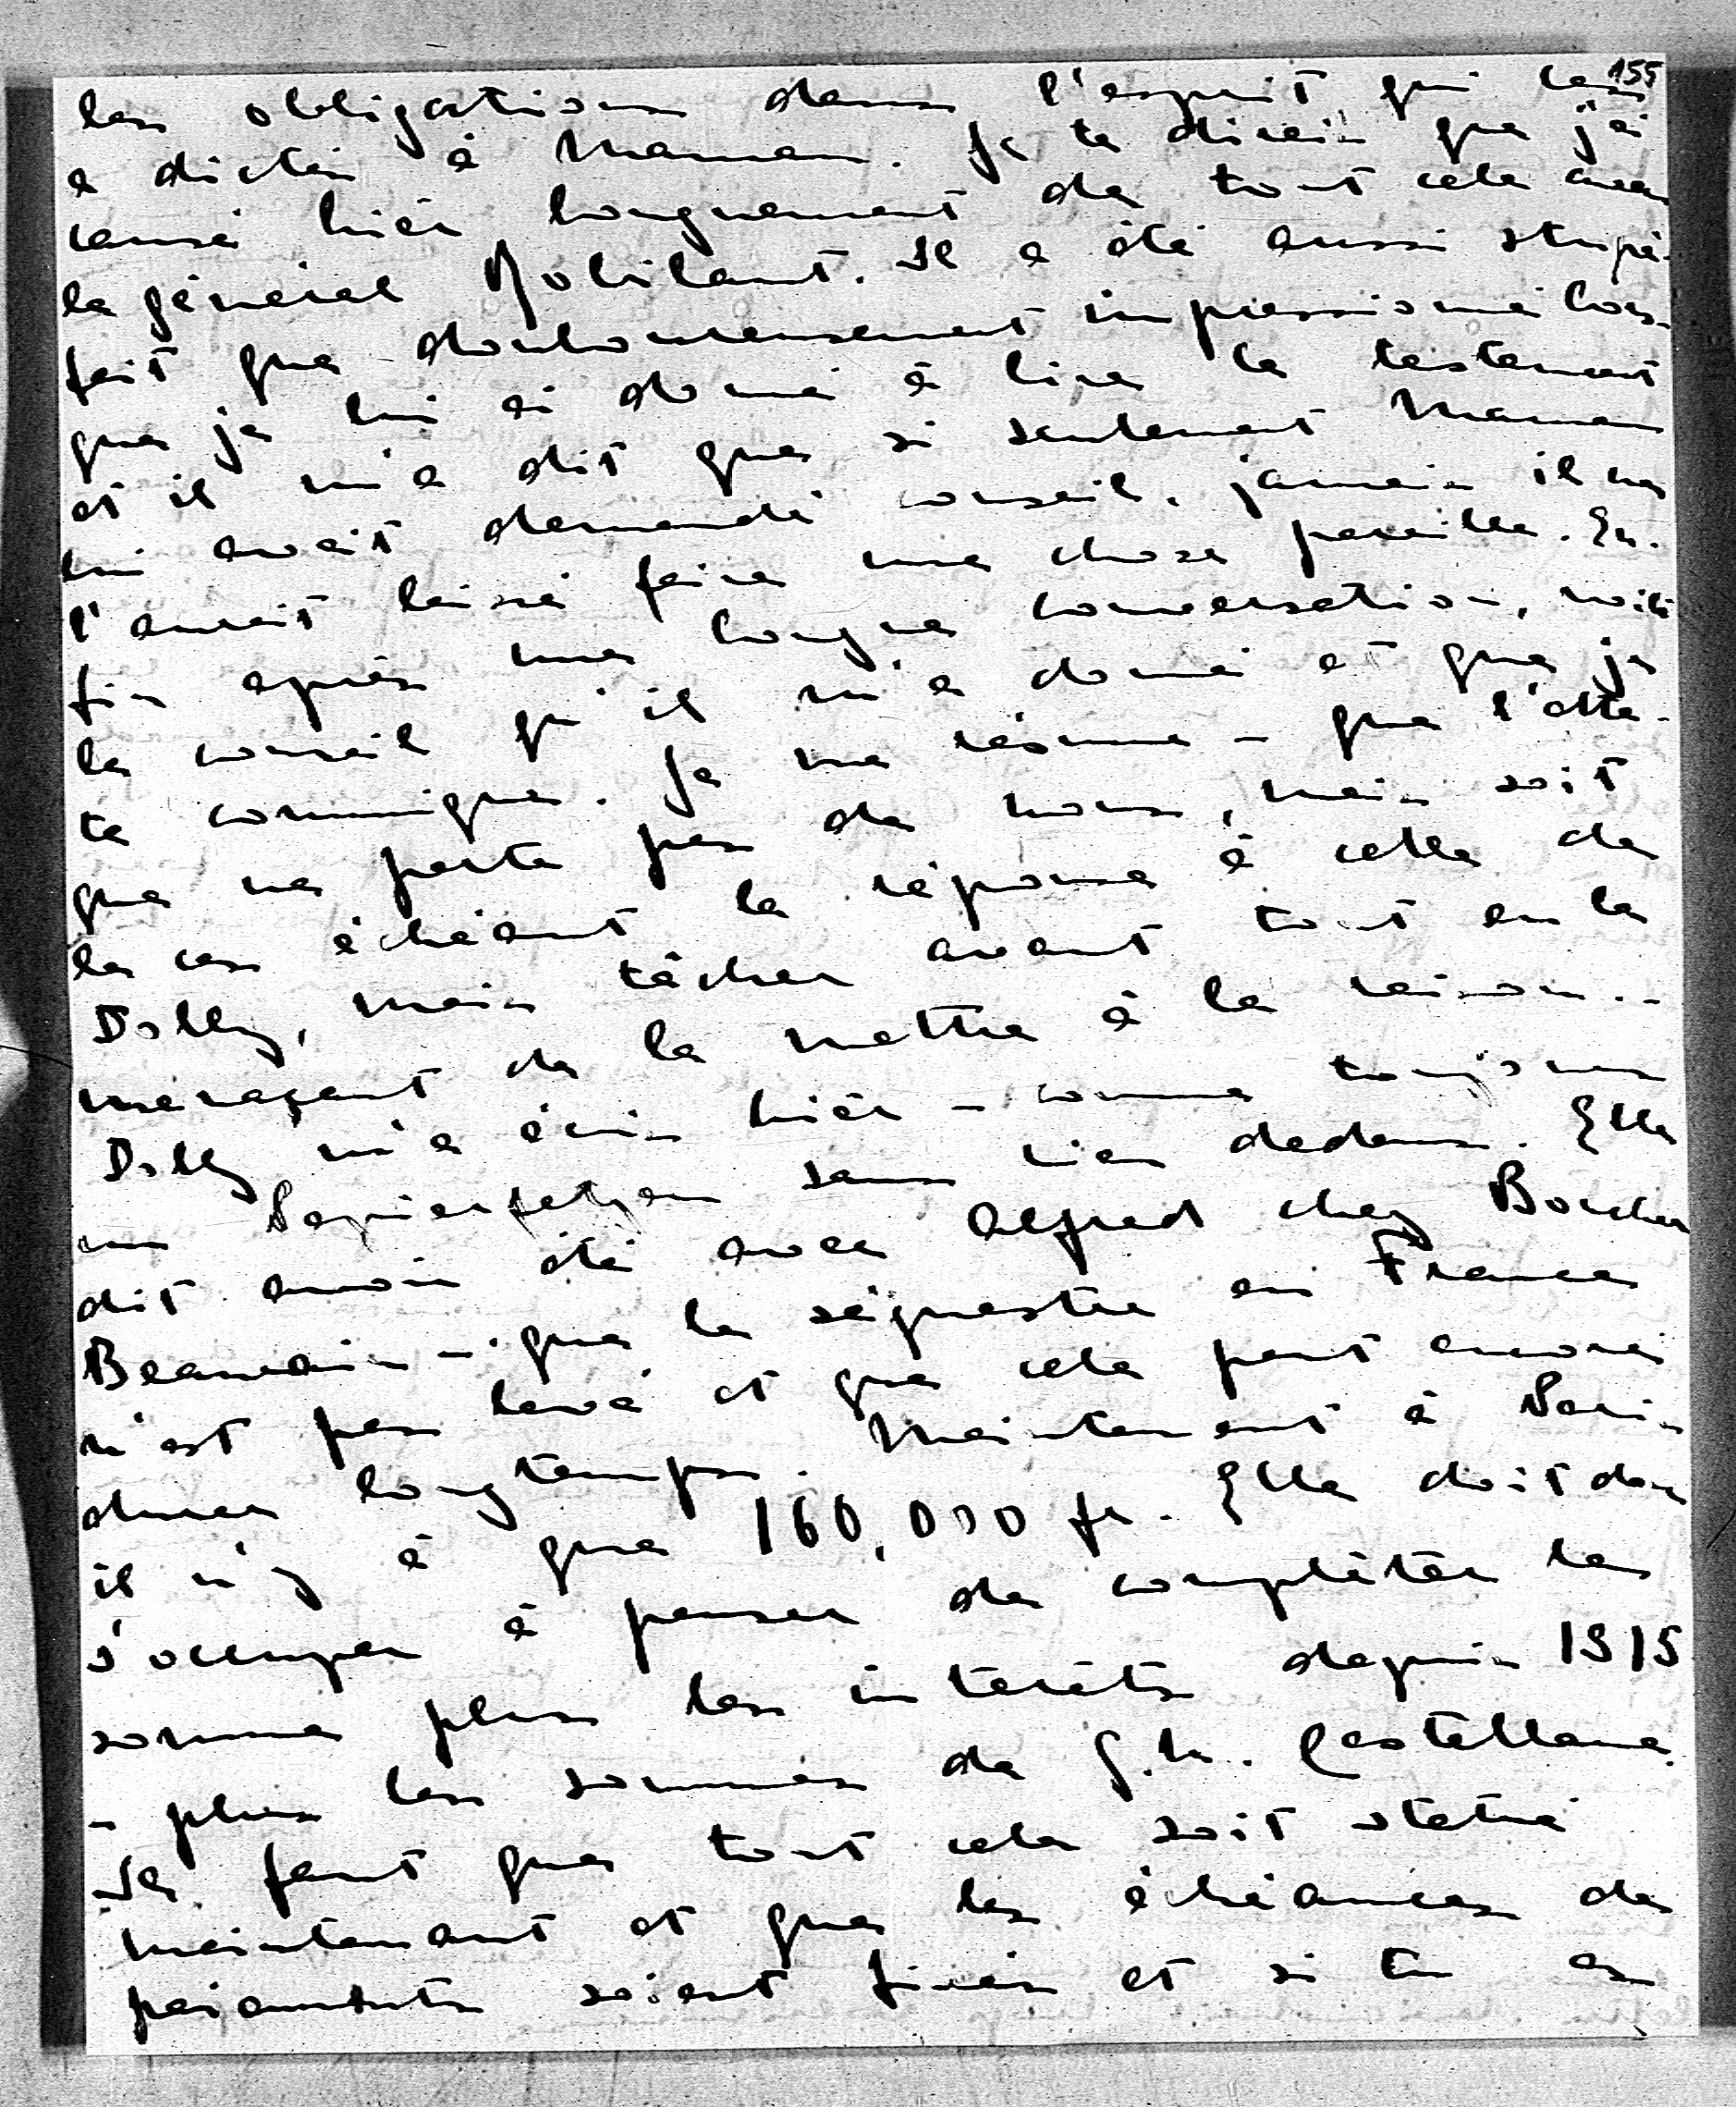 155
les obligations dans l'esprit qui les
a dictés à Maman. Je te dirais que j'ai
causé hier longuement de tout cela avec
le général Robilant. Il a été aussi stupé-
fait que douloureusement impressionné lors-
que je lui ai donné à lire le testament
et il m'a dit que si seulement Maman
lui avait demandé conseil, jamais il ne
l'aurait laissé faire une chose pareille. En-
fin après une longue conversation, voilà
le conseil qu'il m'a donné et que je
te communique. Je me résume – que l'atta-
que ne parte pas de nous, mais soit
le cas échéant la réponse à celle de
Dolly, mais tâcher avant tout en la
menaçant de la mettre à la raison. –
Dolly m'a écrit hier – comme toujours
un Papierfetzen sans rien dedans. Elle
dit avoir été avec Alfred chez Boucher
– que le séquestre en France
n'est pas levé et que cela peut encore
durer longtemps. Maintenant à Paris
il n'y a que 160,000 fr. Elle doit donc
s'occuper à penser de complèter la
somme plus les intérêts depuis 1915
– plus les sommes de Castellane.
Il faut que tout cela soit statué
maintenant et que les échéances de
paiements soient fixées et si tu as